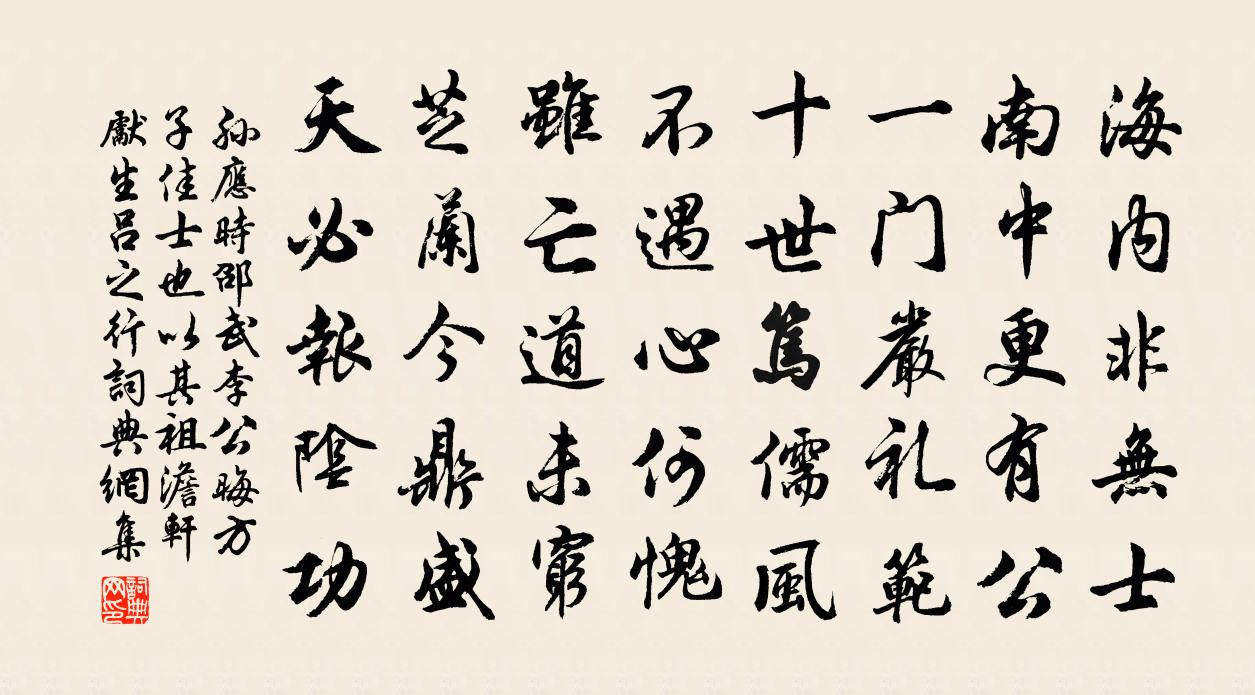 海内非無士
南中更有公
一門嚴礼範
十世篤儒風
不遇心何愧
雖亡道未窮
芝蘭今鼎盛
天必報陰功
孫應時邵武李公晦方
子佳士也以其祖澹軒
獻生呂之行詞典網集
詞典
网印